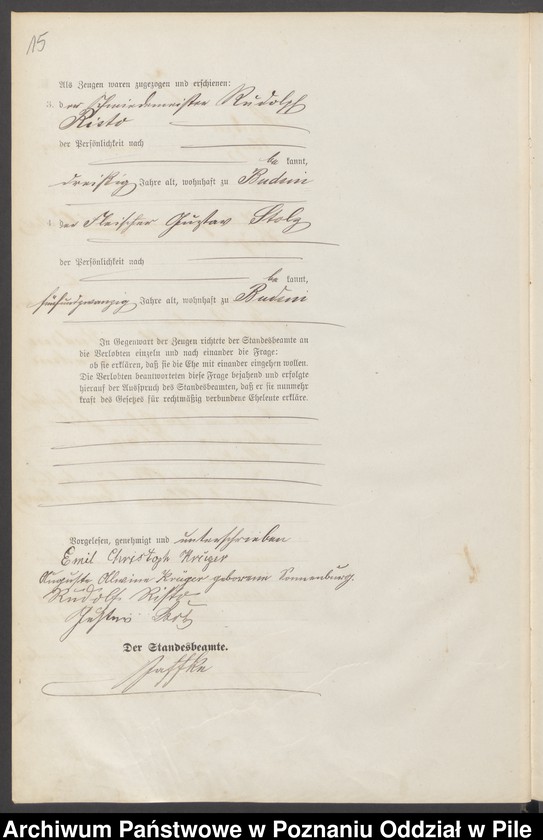 15
Als Zeugen waren zugezogen und erschienen:
3. der Schmiedemeister Rudolph
Risto
der Persönlichkeit nach
be kannt,
dreißig Jahre alt, wohnhaft zu Budsin
4. der Fleischer Gustav Stolz
der Persönlichkeit nach
be kannt,
fünfundzwanzig Jahre alt, wohnhaft zu Budsin
In Gegenwart der Zeugen richtete der Standesbeamte an
die Verlobten einzeln und nach einander die Frage:
ob sie erklären, daß sie die Ehe mit einander eingehen wollen.
Die Verlobten beantworteten diese Frage bejahend und erfolgte
hierauf der Ausspruch des Standesbeamten, daß er sie nunmehr
kraft des Gesetzes für rechtmäßig verbundene Eheleute erkläre.
Vorgelesen, genehmigt und unterschrieben
Emil Christoph Krüger
Auguste Alwine Krüger geborene Sonnenburg.
Rudolf Risto
Gustav
Der Standesbeamte.
Jaffke
Archiwum Państwowe w Poznaniu Oddział w Pile